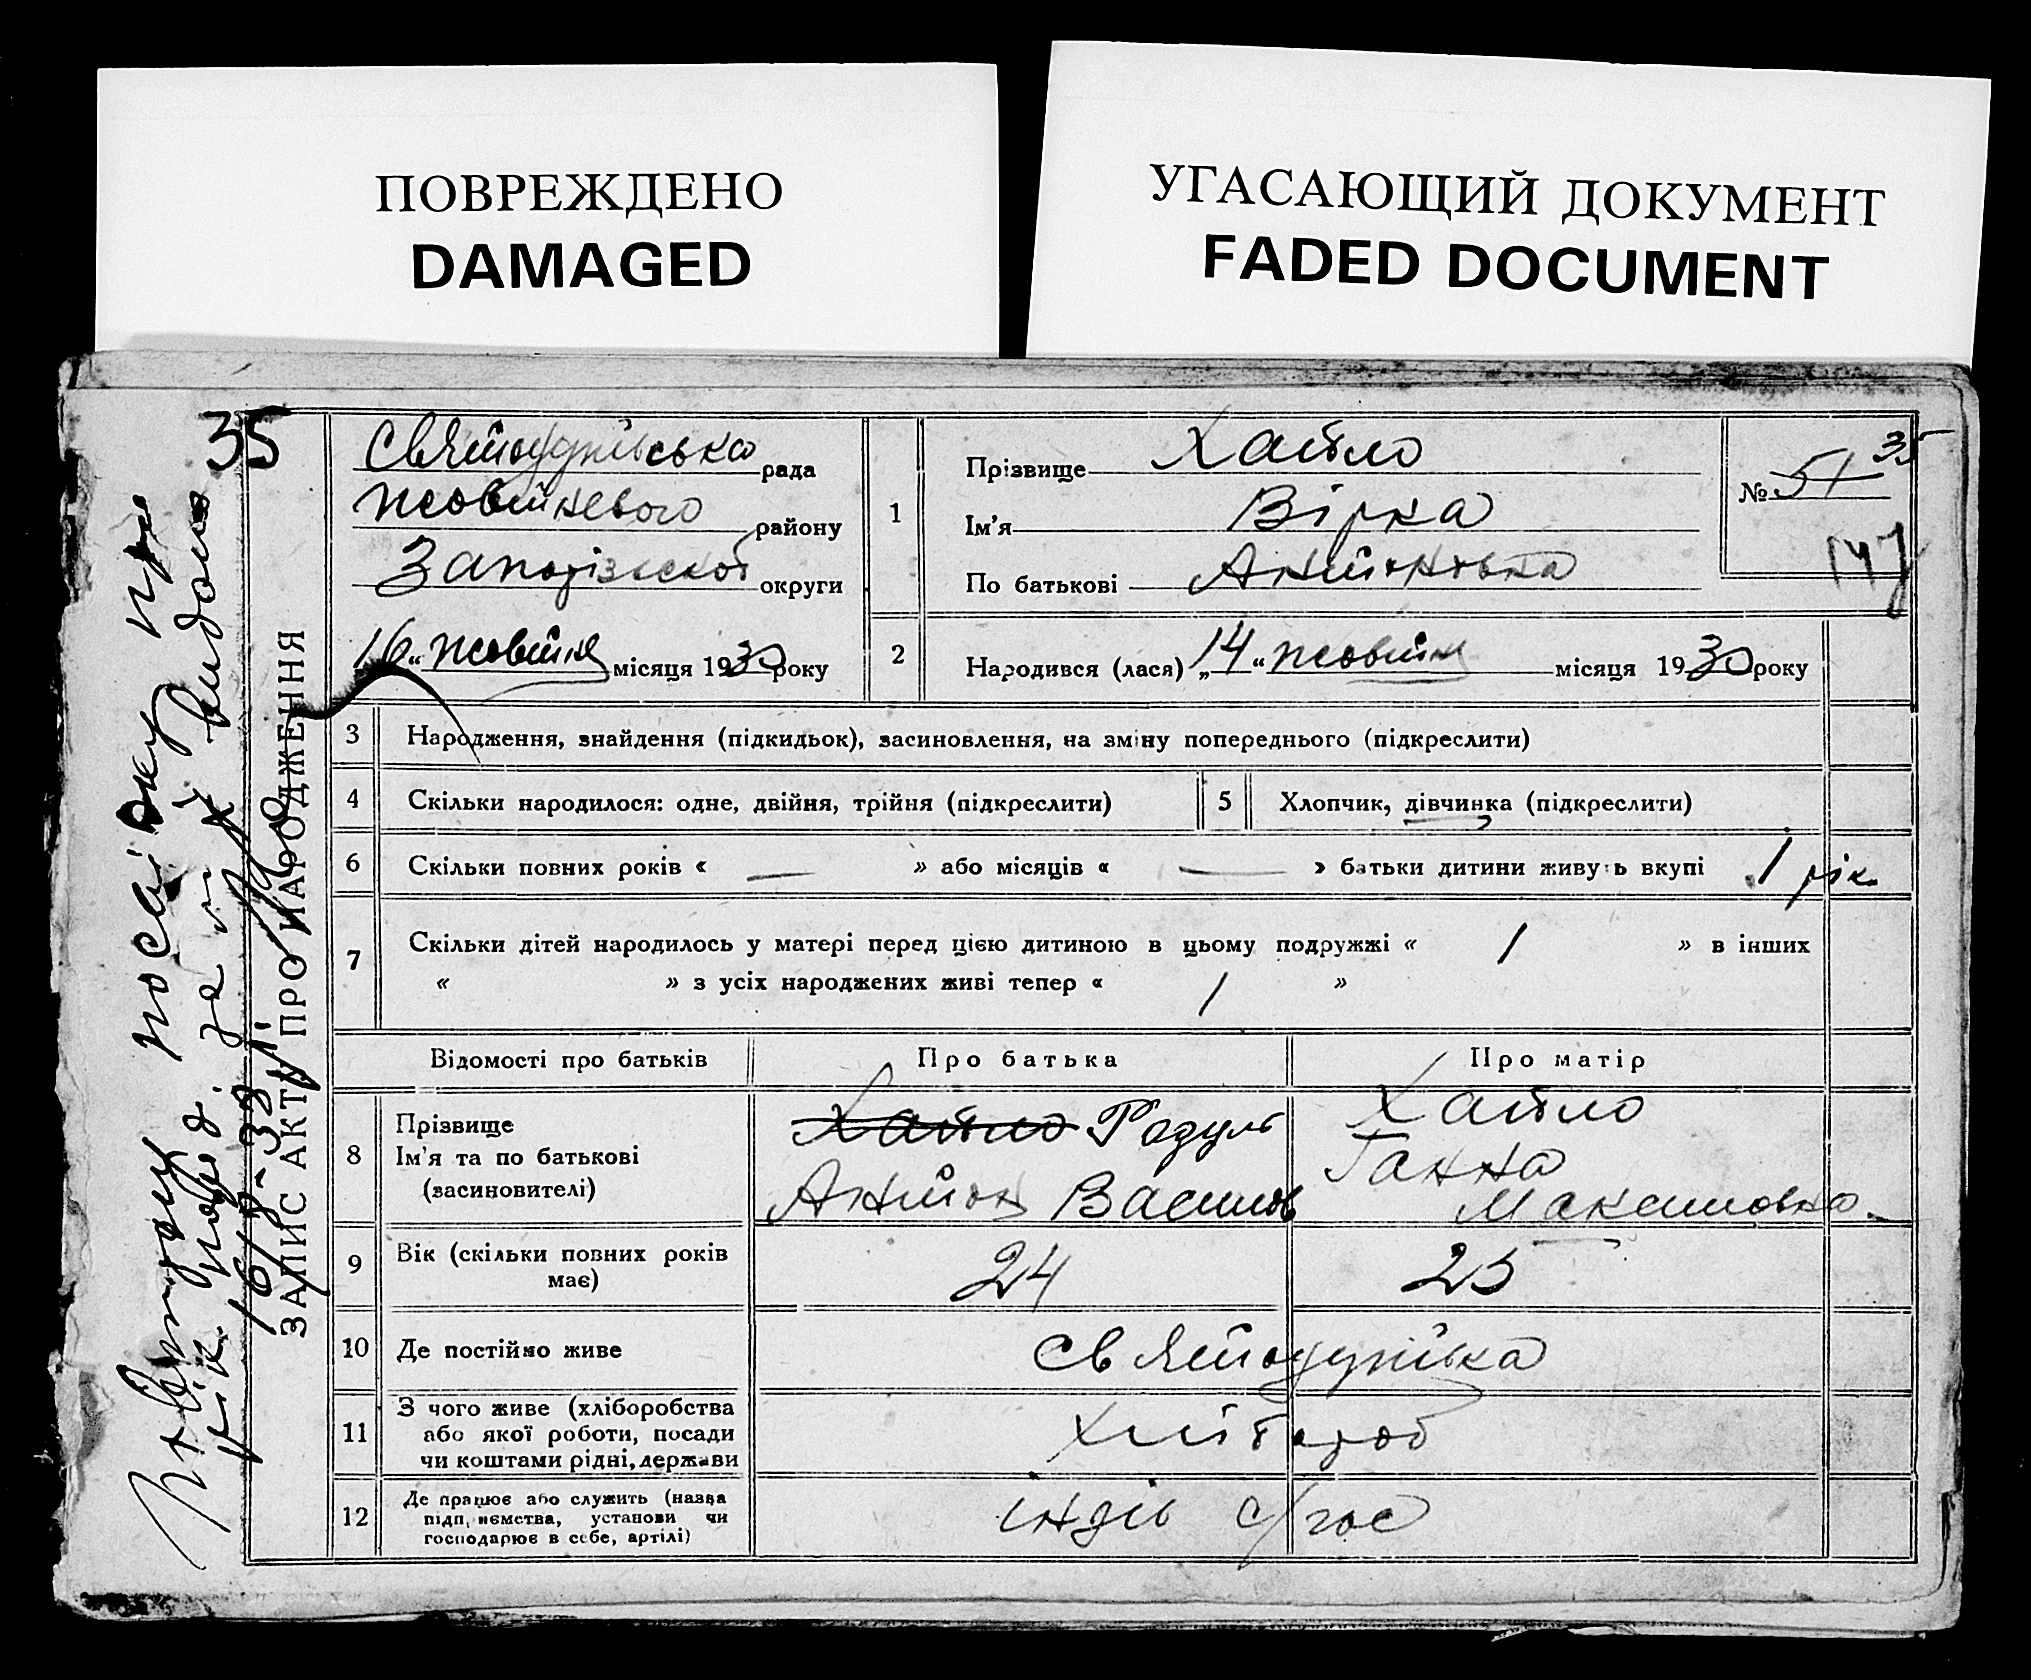 ПОВРЕЖДЕНО
DAMAGED
УГАСАЮЩИЙ ДОКУМЕНТ
FADED DOCUMENT
35
ЗАПИС АКТУ ПРО НАРОДЖЕННЯ
рада
Жовтневого району
Запорізької округи
16 „ жовтня місяця 1930 року
1
Прізвище Хайло
Ім'я Вірка
По батькові Антоновна
№ 51 35
147
2
Народився (лася) „ 14 “ жовтня місяця 1930 року
3 Народження, знайдення (підкидьок), засиновлення, на зміну попереднього (підкреслити)
4 Скільки народилося: одне, двійня, трійня (підкреслити)
5 Хлопчик, дівчинка (підкреслити)
6 Скільки повних років « — » або місяців « — » батьки дитини живуть вкупі 1 рік
7 Скільки дітей народилось у матері перед цією дитиною в цьому подружжі « 1 » в інших
« » з усіх народжених живі тепер « 1 »
Відомості про батьків
Про батька
Про матір
8 Прізвище
Ім'я та по батькові
(засиновителі)
Хайло
Антон Васильов
Хайло
Ганна
Максимовна
9 Вік (скільки повних років
має)
24
25
10 Де постійно живе
11 З чого живе (хліборобства
або якої роботи, посади
чи коштами рідні, держави
Хлібороб
12 Де працює або служить (назва
підприємства, установи чи
господарює в себе, артілі)
індів с/гос